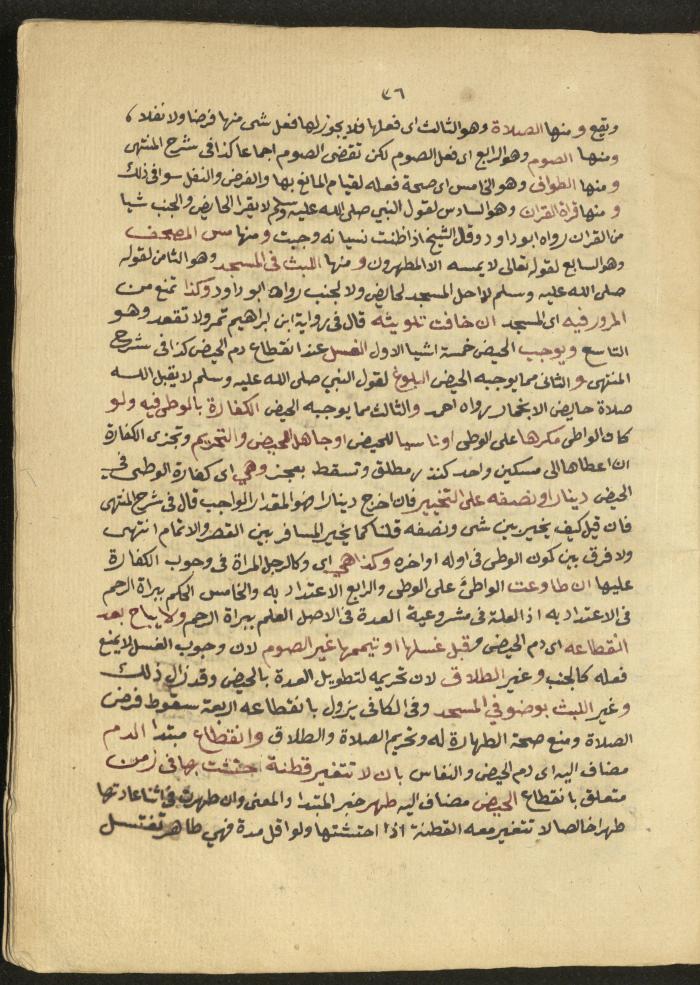 ٧٦
ويقع ومنها الصلاة وهو الثالث اى فعلها فلا يجوز لها فعل شى منها فرضا ولا نفلا
ومنها الصوم وهو الرابع اى فعل الصوم لكن تقضى الصوم اجماعا كذا فى شرح المنتهى
ومنها الطواف وهو الخامس اى صحة فعله لقيام المانع بها والفرض والنفل سوا فى ذلك
ومنها قراة القران وهو السادس لقول النبي صلى الله عليه وسلم لا يقرا الحايض والجنب شيا
من القران رواه ابو داود وقال الشيخ اذا ظنت نسيانه وجبت ومنها مس المصحف
وهو السابع لقوله تعالى لا يمسه الا المطهرون ومنها اللبث فى المسجد وهو الثامن لقوله
صلى الله عليه وسلم لا احل المسجد لحايض ولا لجنب رواه ابو داود وكذا تمنع من
المرور فيه اى المسجد ان خافت تلويثه قال فى رواية ابن ابراهيم تمر ولا تقعد وهو
التاسع ويوجب الحيض خمسة اشيا الاول الغسل عند انقطاع دم الحيض كذا فى شرح
المنتهى والثانى مما يوجبه الحيض البلوغ لقول النبي صلى الله عليه وسلم لا يقبل الله
صلاة حايض الا بخمار رواه احمد والثالث مما يوجبه الحيض الكفارة بالوطى فيه ولو
كان الواطى مكرها على الوطى او ناسيا للحيض او جاهل الحيض والتحريم وتجزى الكفارة
ان اعطاها الى مسكين واحد كنذر مطلق وتسقط بعجز وهي اى كفارة الوطى فى
الحيض دينار او نصفه على التخيير فان اخرج دينارا فهو المقدار الواجب قال فى شرح المنتهى
فان قيل كيف يخير بين شى ونصفه قلنا كما يخير المسافر بين القصر والاتمام انتهى
ولا فرق بين كون الوطى فى اوله او اخره وكذا هي اى وكالرجل المراة فى وجوب الكفارة
عليها ان طاوعت الواطئ على الوطى والرابع الاعتداد به والخامس الحكم ببراة الرحم
فى الاعتداد به اذ العلة فى مشروعية العدة فى الاصل العلم ببراة الرحم ولا يباح بعد
انقطاعه اى دم الحيض وقبل غسلها او تيممها غير الصوم لان وجوب الغسل لا يمنع
فعله كالجنب وغير الطلاق لان تحريمه لتطويل العدة بالحيض وقد زال ذلك
وغير اللبث بوضو في المسجد وفى الكافى يزول بانقطاعه اربعة سقوط فرض
الصلاة ومنع صحة الطهارة له وتحريم الصلاة والطلاق وانقطاع مبتدا الدم
مضاف اليه اى دم الحيض والنفاس بان لا تتغير قطنة حتشت بها فى زمن
متعلق بانقطاع الحيض مضاف اليه طهر خبر المبتدا والمعنى وان طهرت فى اثنا عادتها
طهرا خالصا لا تتغير معه القطنة اذا احتشتها ولو اقل مدة فهي طاهر تغتسل